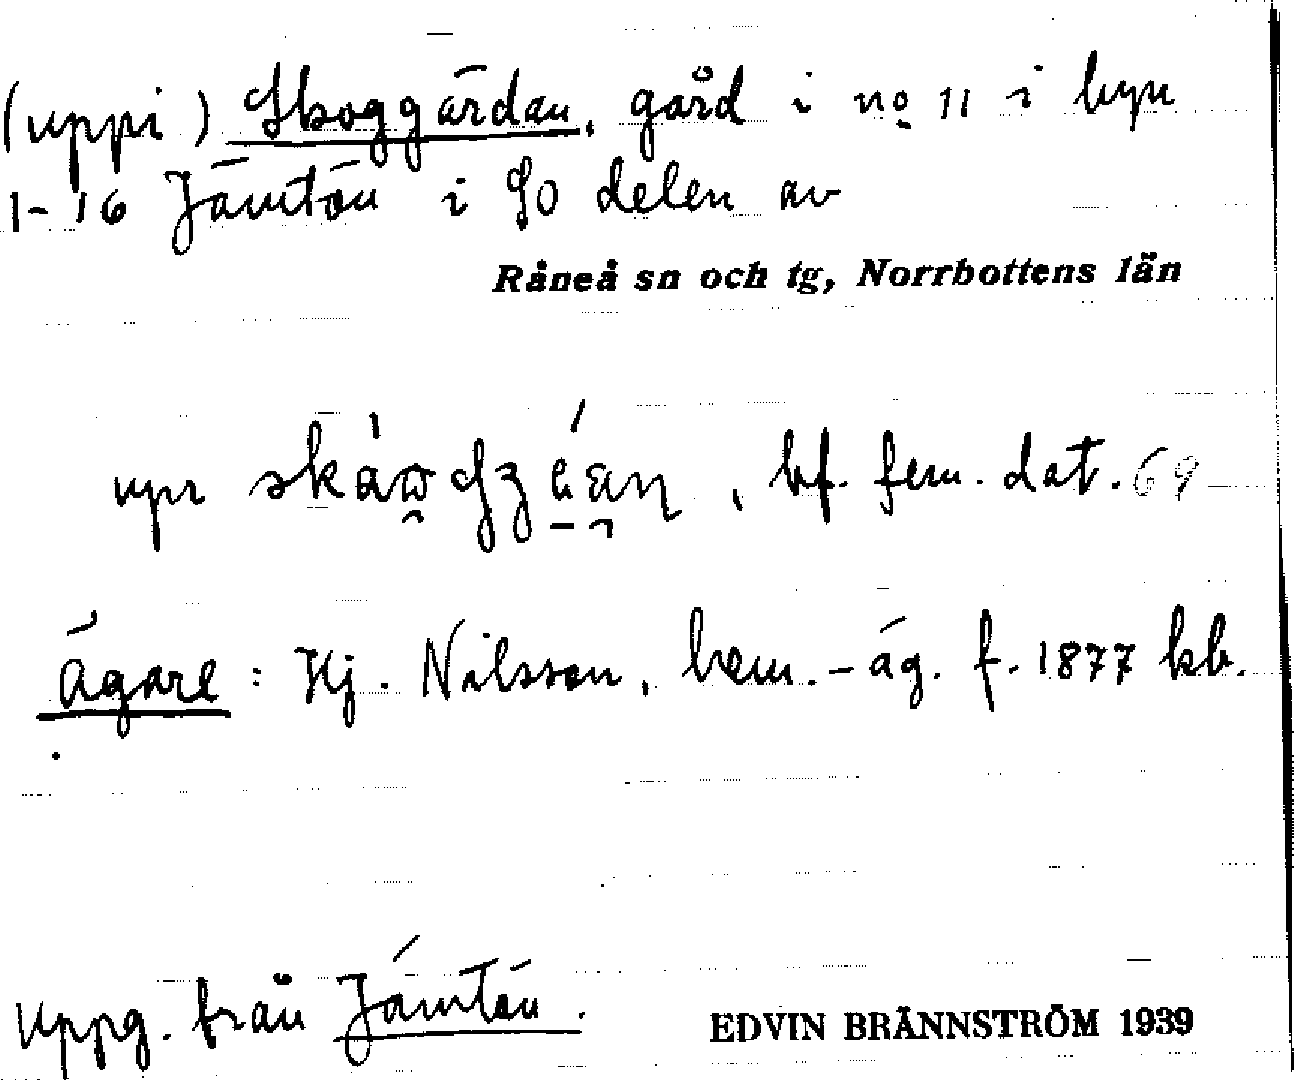 (uppi) Skoggärdan, gård i no 11 i byn
1-16 Jämtön i SO delen av
Råneå sn och tg, Norrbottens län
upr , bf. fem. dat. 69
ägare: Hj. Nilsson, hem.-äg. f. 1877 kb.
Uppg. från Jämtön.
EDVIN BRÄNNSTRÖM 1939